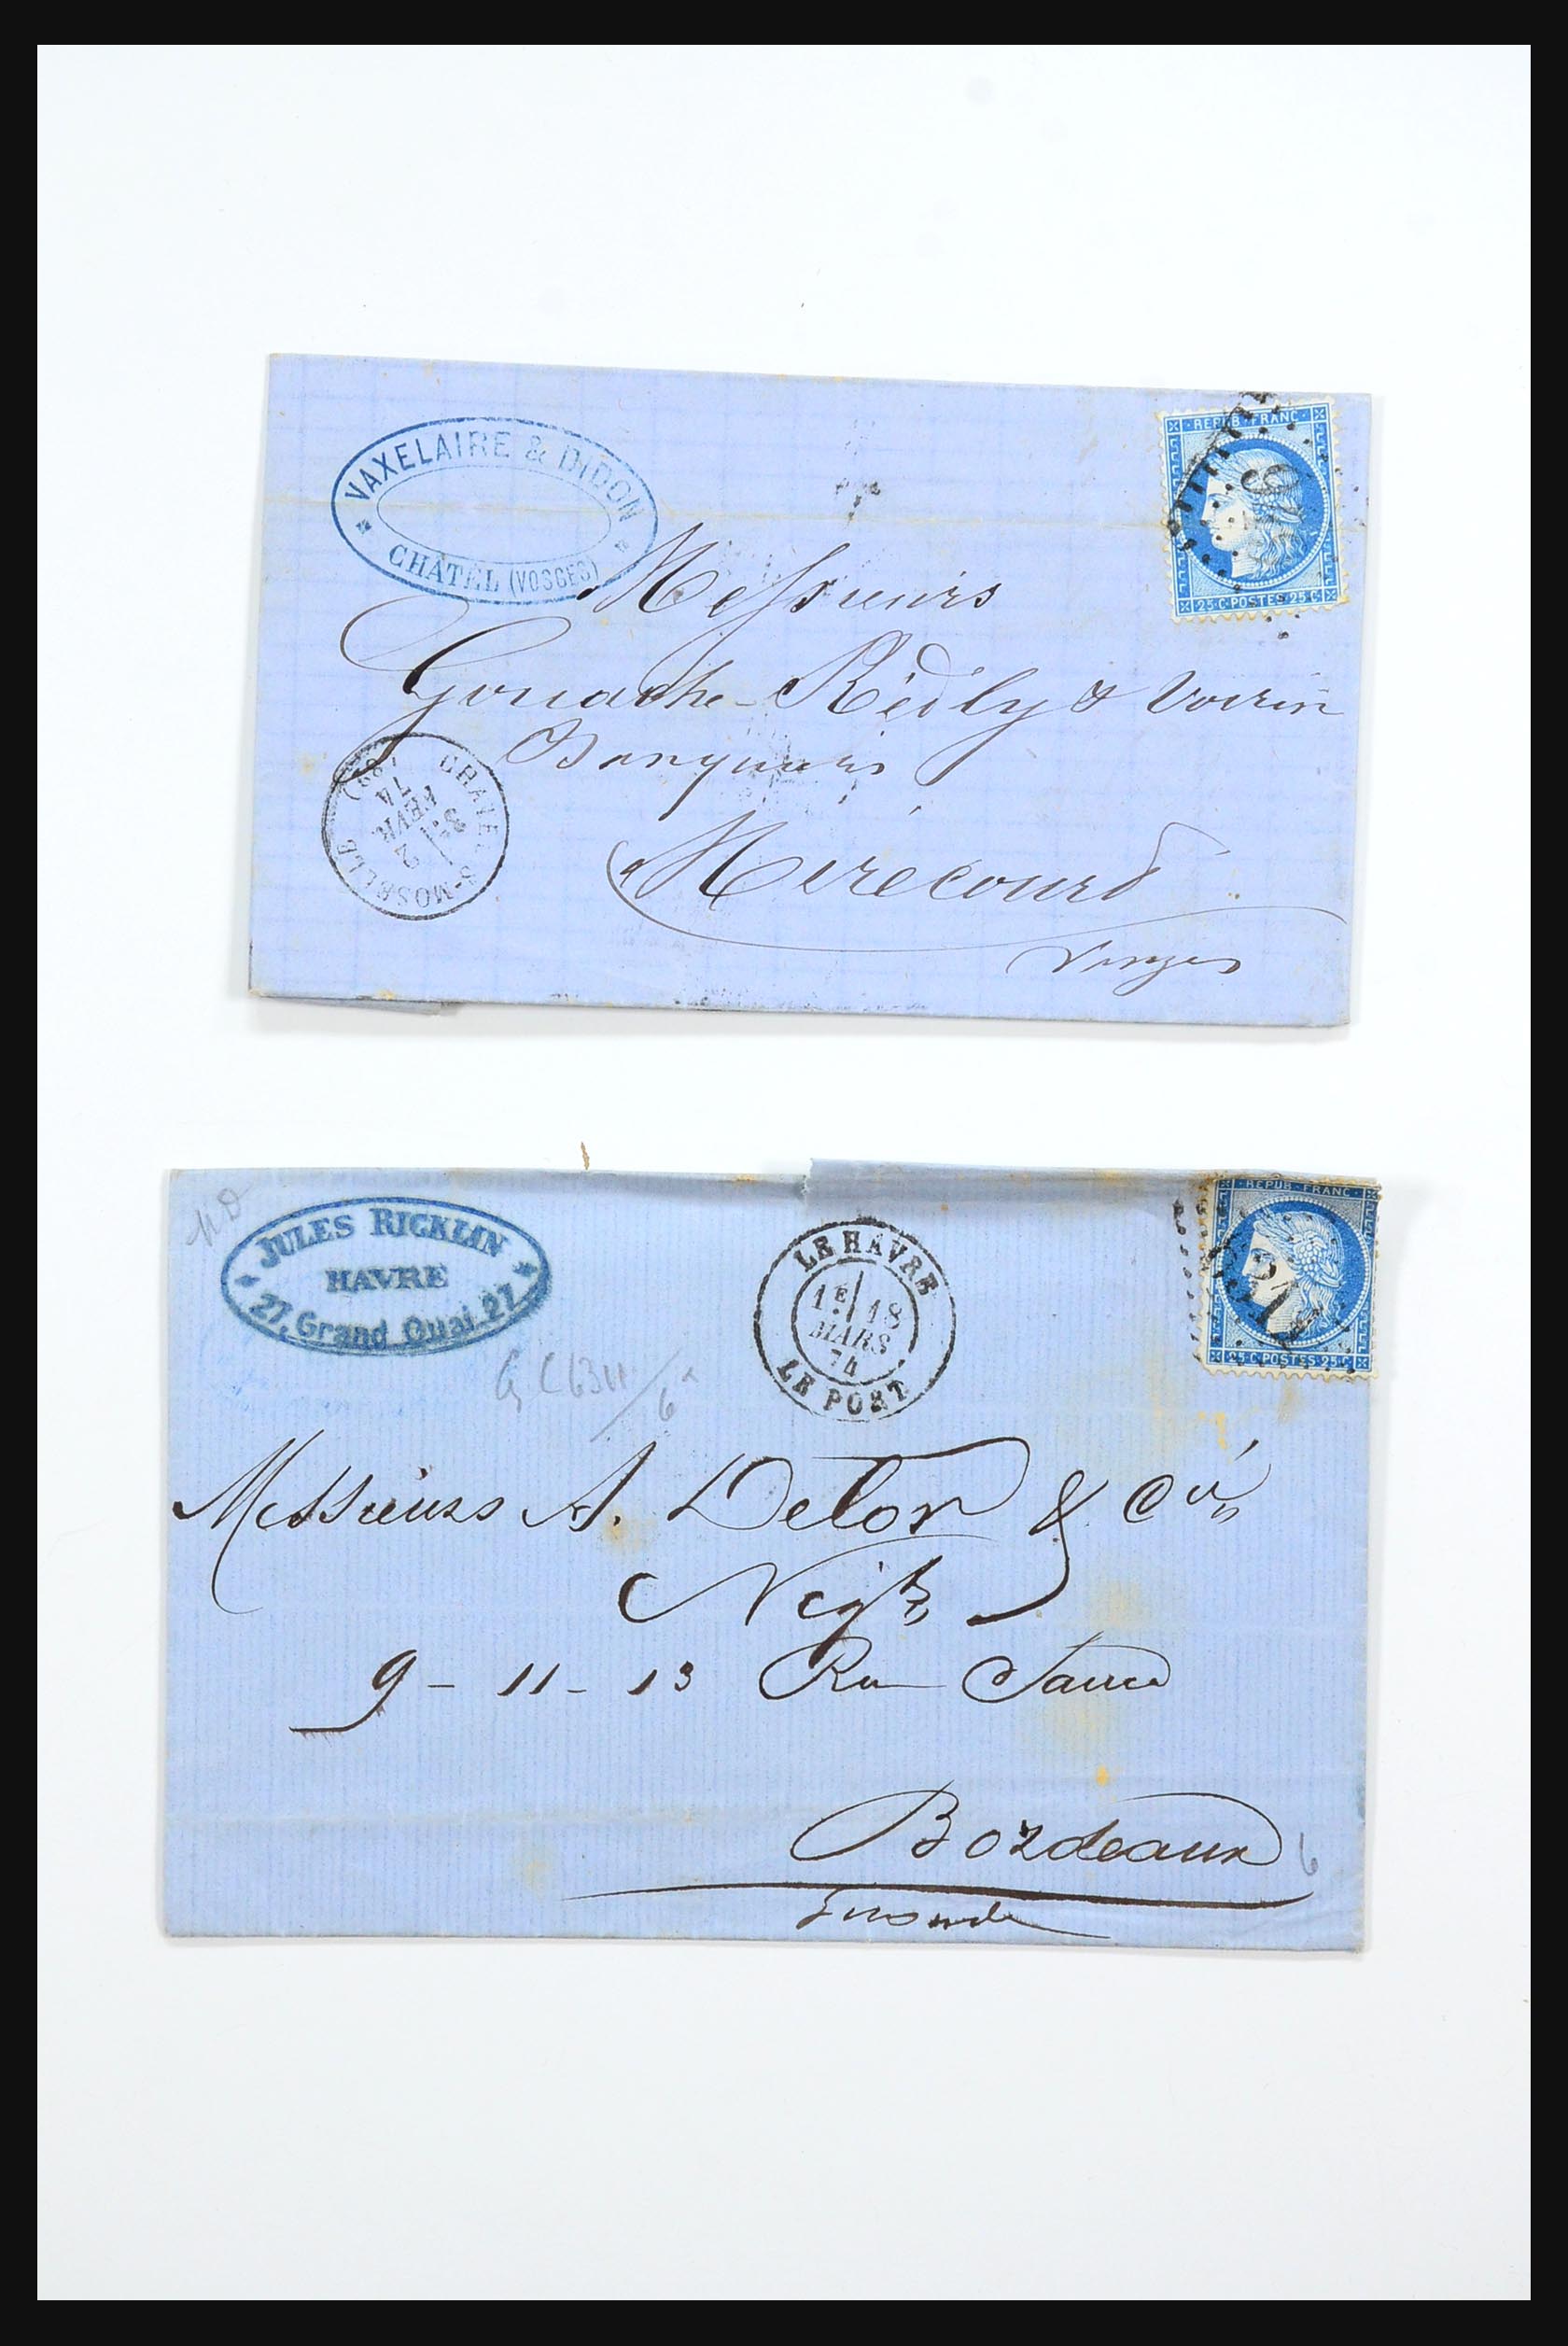 VAXELAIRE & DIDON
CHÂTEL (VOSGES)
REPUB·FRANC·
25·C·POSTES·25·C
Messieurs
Gouache-Rédly & Voirin
Banquiers
Mirecourt
Vosges
S-MOSELLE
3E
2
FEVR
74
(88)
JULES RICKLIN
HAVRE
27, Grand Quai, 27
LE HAVRE
1E 18
MARS
74
LE PORT
REPUB·FRANC·
25·C·POSTES·25·C
Messieurs A. Delor & Cie
Négts
9 - 11 - 13 Rue
Bordeaux
6
Gironde